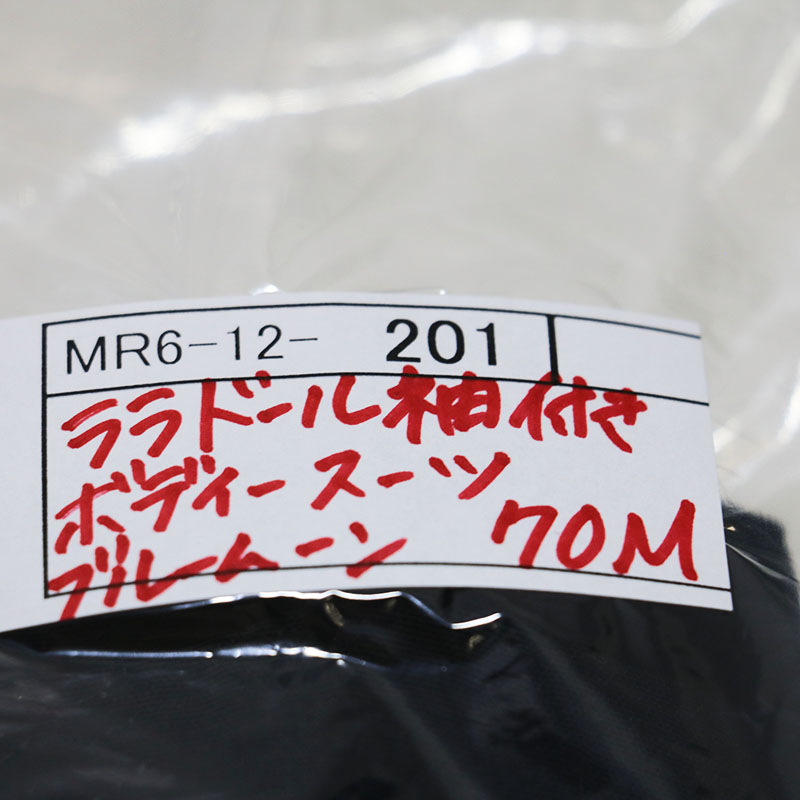 MR6-12- 201
ララドール袖付き
ボディースーツ
ブルームーン 70M